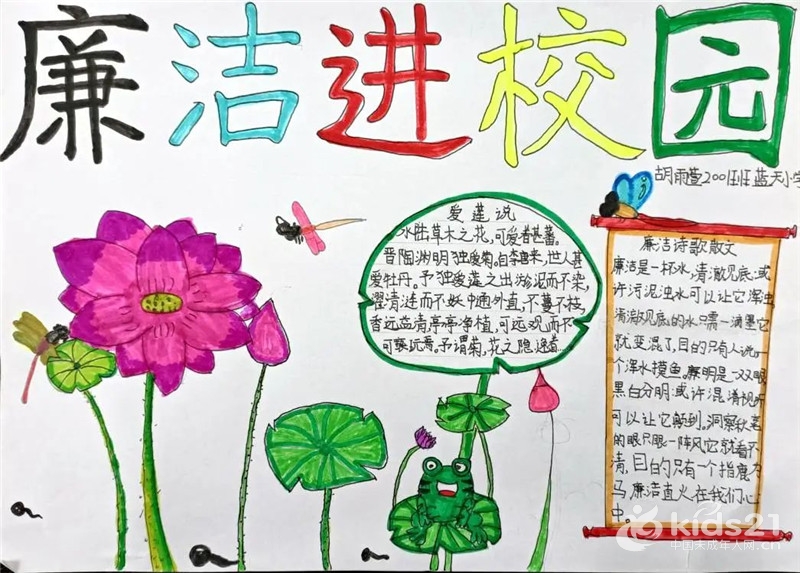 廉洁进校园
胡雨萱2001班蓝天小学
爱莲说
水陆草木之花,可爱者甚蕃。
晋陶渊明独爱菊。自李唐来,世人甚
爱牡丹。予独爱莲之出淤泥而不染,
濯清涟而不妖中通外直,不蔓不枝,
香远益清亭亭净植,可远观而不
可亵玩焉。予谓菊,花之隐逸者
廉洁诗歌散文
廉洁是一杯水,清澈见底:或
许污泥浊水可以让它浑浊
清澈见底的水只需一滴墨它
就变混了,目的只有人说一
个浑水摸鱼。廉明是一双眼
黑白分明:或许混淆视听
可以让它躲到。洞察秋毫
的眼只眼一阵风它就看不
清,目的只有一个指鹿为
马廉洁直火在我们心
中。
kids21
中国未成年人网.cn